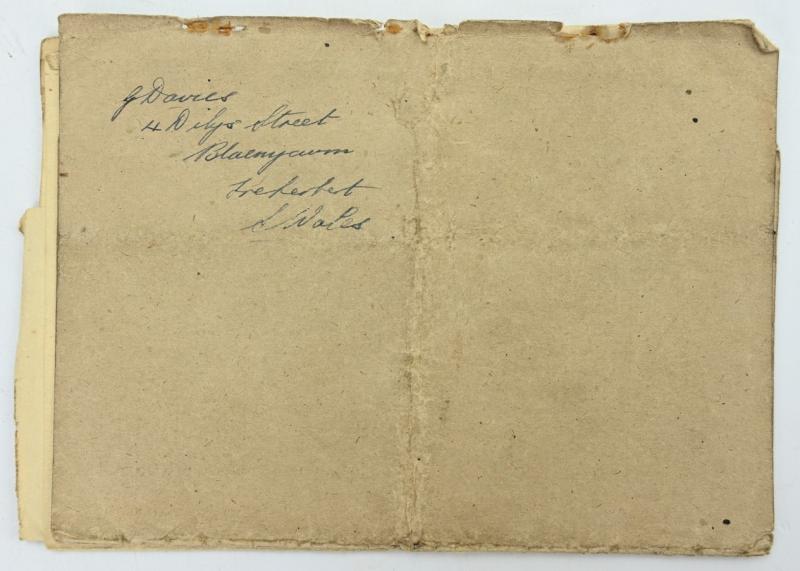 G Davies
4 Dilys Street
Blaenycwm
Treherbert
S/Wales